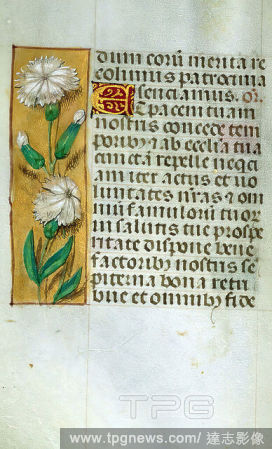 dum eorū merita re
colimus patrocinia
senciamus. or.
Et pacem tuam
nostris concede tem
poribꝫ ab ecclīa tua
cunctā repelle neqͥci
am iter actus et uo
luntates nr̄as ⁊ om
niū famuloꝝ tuor
in salutis tue prospe
ritate dispone bene
factoribꝫ nostris se
piterna bona retri
bue et omnibꝫ fide
TPG
www.tpgnews.com/ 達志影像